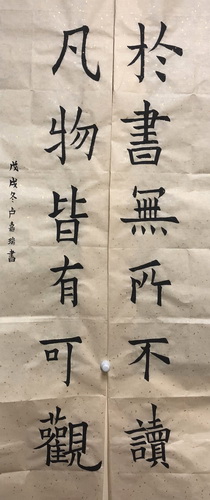 於書無所不讀
凡物皆有可觀
戊戌冬卢彝瑞書